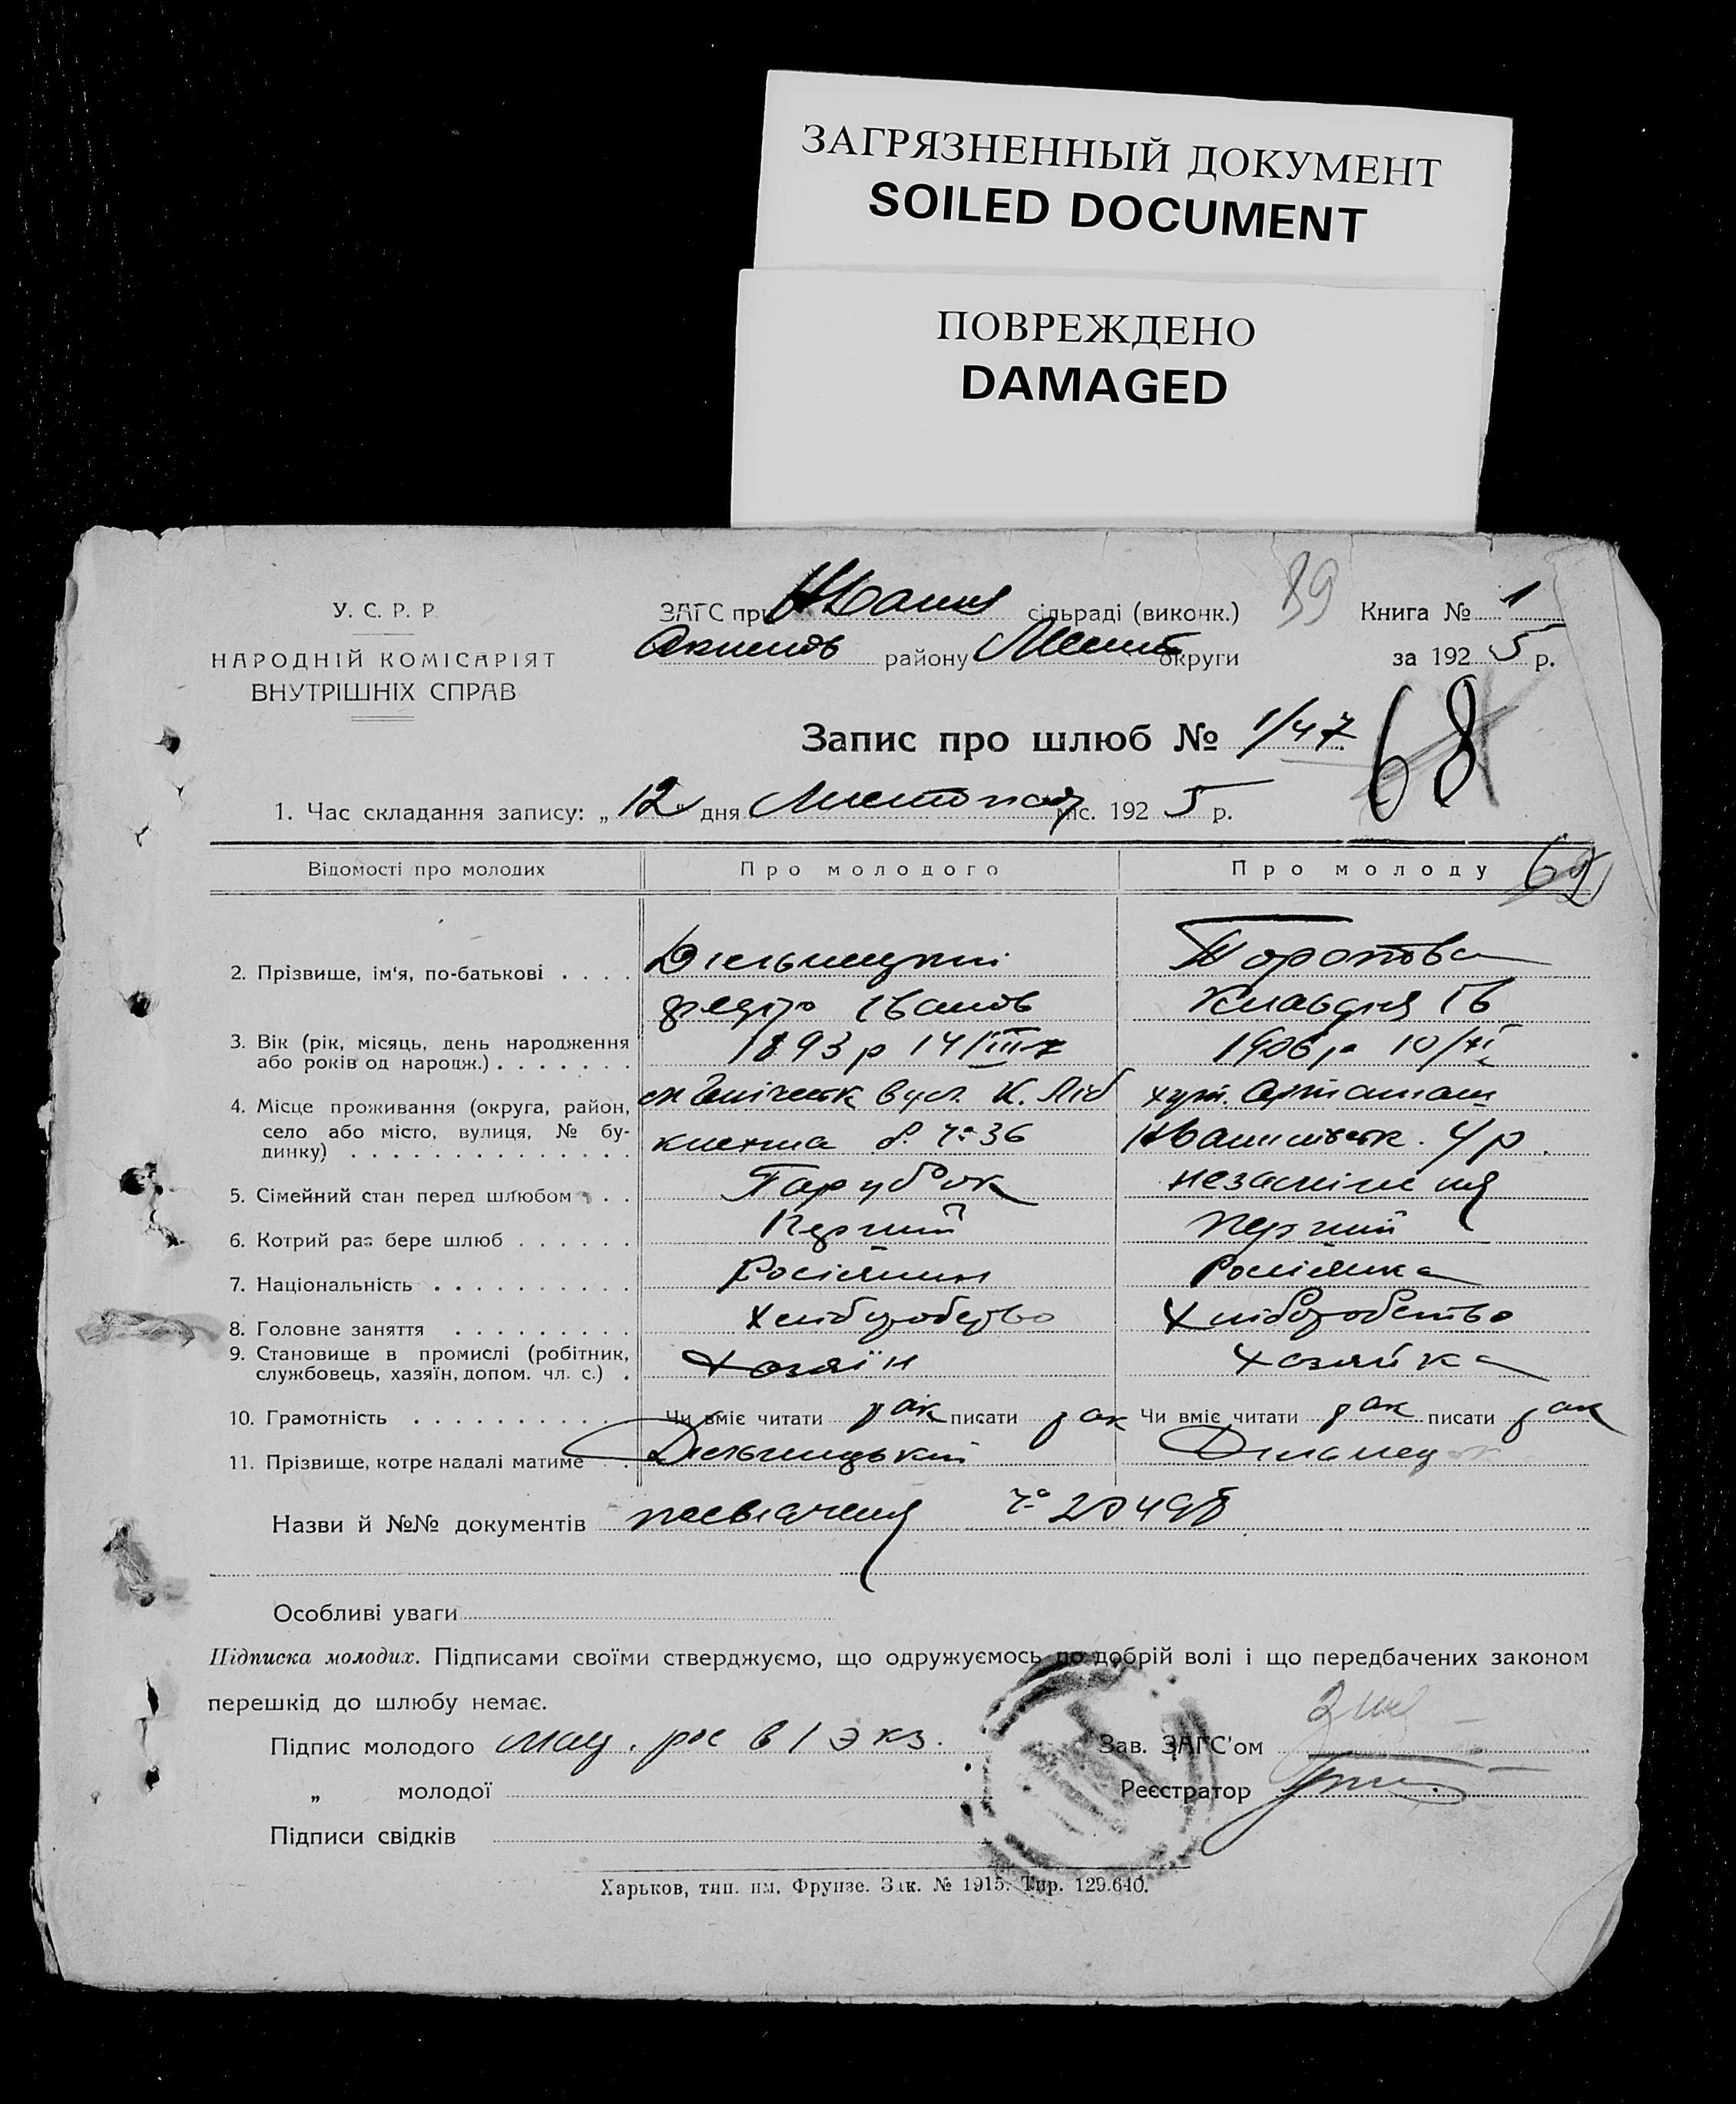 ЗАГРЯЗНЕННЫЙ ДОКУМЕНТ
SOILED DOCUMENT
ПОВРЕЖДЕНО
DAMAGED
У. С. Р. Р.
НАРОДНІЙ КОМІСАРІЯТ
ВНУТРІШНІХ СПРАВ
ЗАГС при сільраді (виконк.) 39 Книга № 1
району округи за 192 5 р.
Запис про шлюб № 1/47 68
1. Час складання запису: „ 12 " дня Листопад міс. 192 5 р.
Відомості про молодих Про молодого Про молоду
2. Прізвище, ім'я, по-батькові . . . . Торопова
Іванов Клавдія Ів
3. Вік (рік, місяць, день народження
або років од народж.) . . . . . . . 1893 р 14/III 1906 р 10/
4. Місце проживання (округа, район,
село або місто, вулиця, № бу-
динку) . . . . . . . . . . . . . . кнехта 36
5. Сімейний стан перед шлюбом . . Парубок незаміжня
6. Котрий раз бере шлюб . . . . . . Перший Перший
7. Національність . . . . . . . . . . Росіянин Росіянка
8. Головне заняття . . . . . . . . . Хліборобство Хліборобство
9. Становище в промислі (робітник,
службовець, хазяїн, допом. чл. с.) . Хозяїн Хозяйка
10. Грамотність . . . . . . . . . . Чи вміє читати так писати так Чи вміє читати так писати так
11. Прізвище, котре надалі матиме . .
Назви й №№ документів посвідчення 20498
Особливі уваги
Підписка молодих. Підписами своїми стверджуємо, що одружуємось по добрій волі і що передбачених законом
перешкід до шлюбу немає.
Підпис молодого в 1 экз. Зав. ЗАГС'ом
„ молодої Реєстратор
Підписи свідків
Харьков, тип. им. Фрунзе. Зак. № 1915. Тир. 129.640.